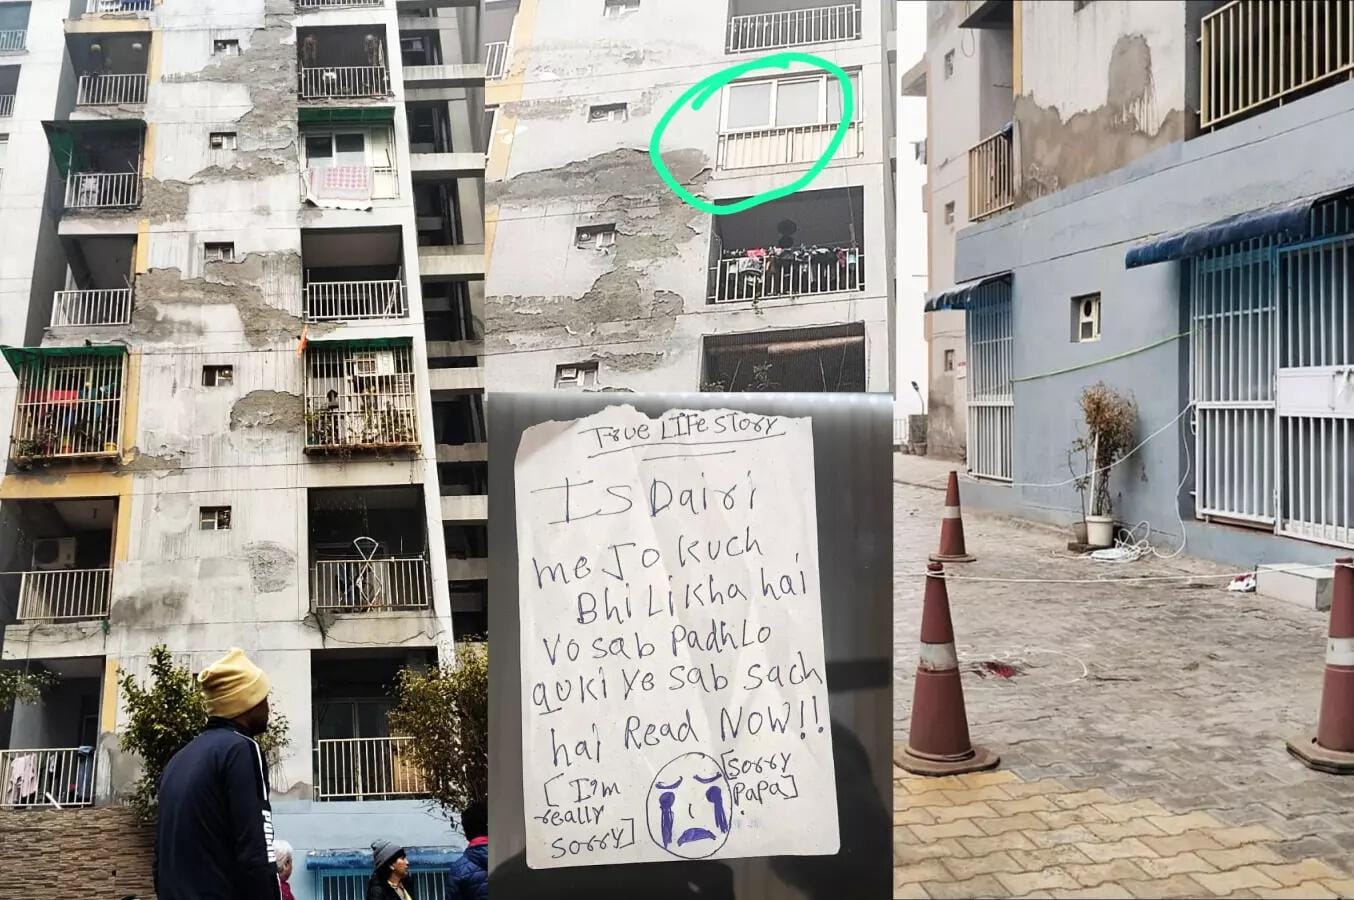 True Life Story
Is Dairi
me Jo kuch
Bhi Likha hai
vo sab Padh Lo
quki ye sab sach
hai Read NOW!!
[I'm
really
sorry]
[sorry
Papa]